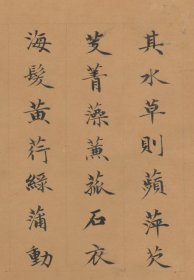 其水草則蘋萍芡
芰菁藻薰菰石衣
海髮黃荇綠蒲動